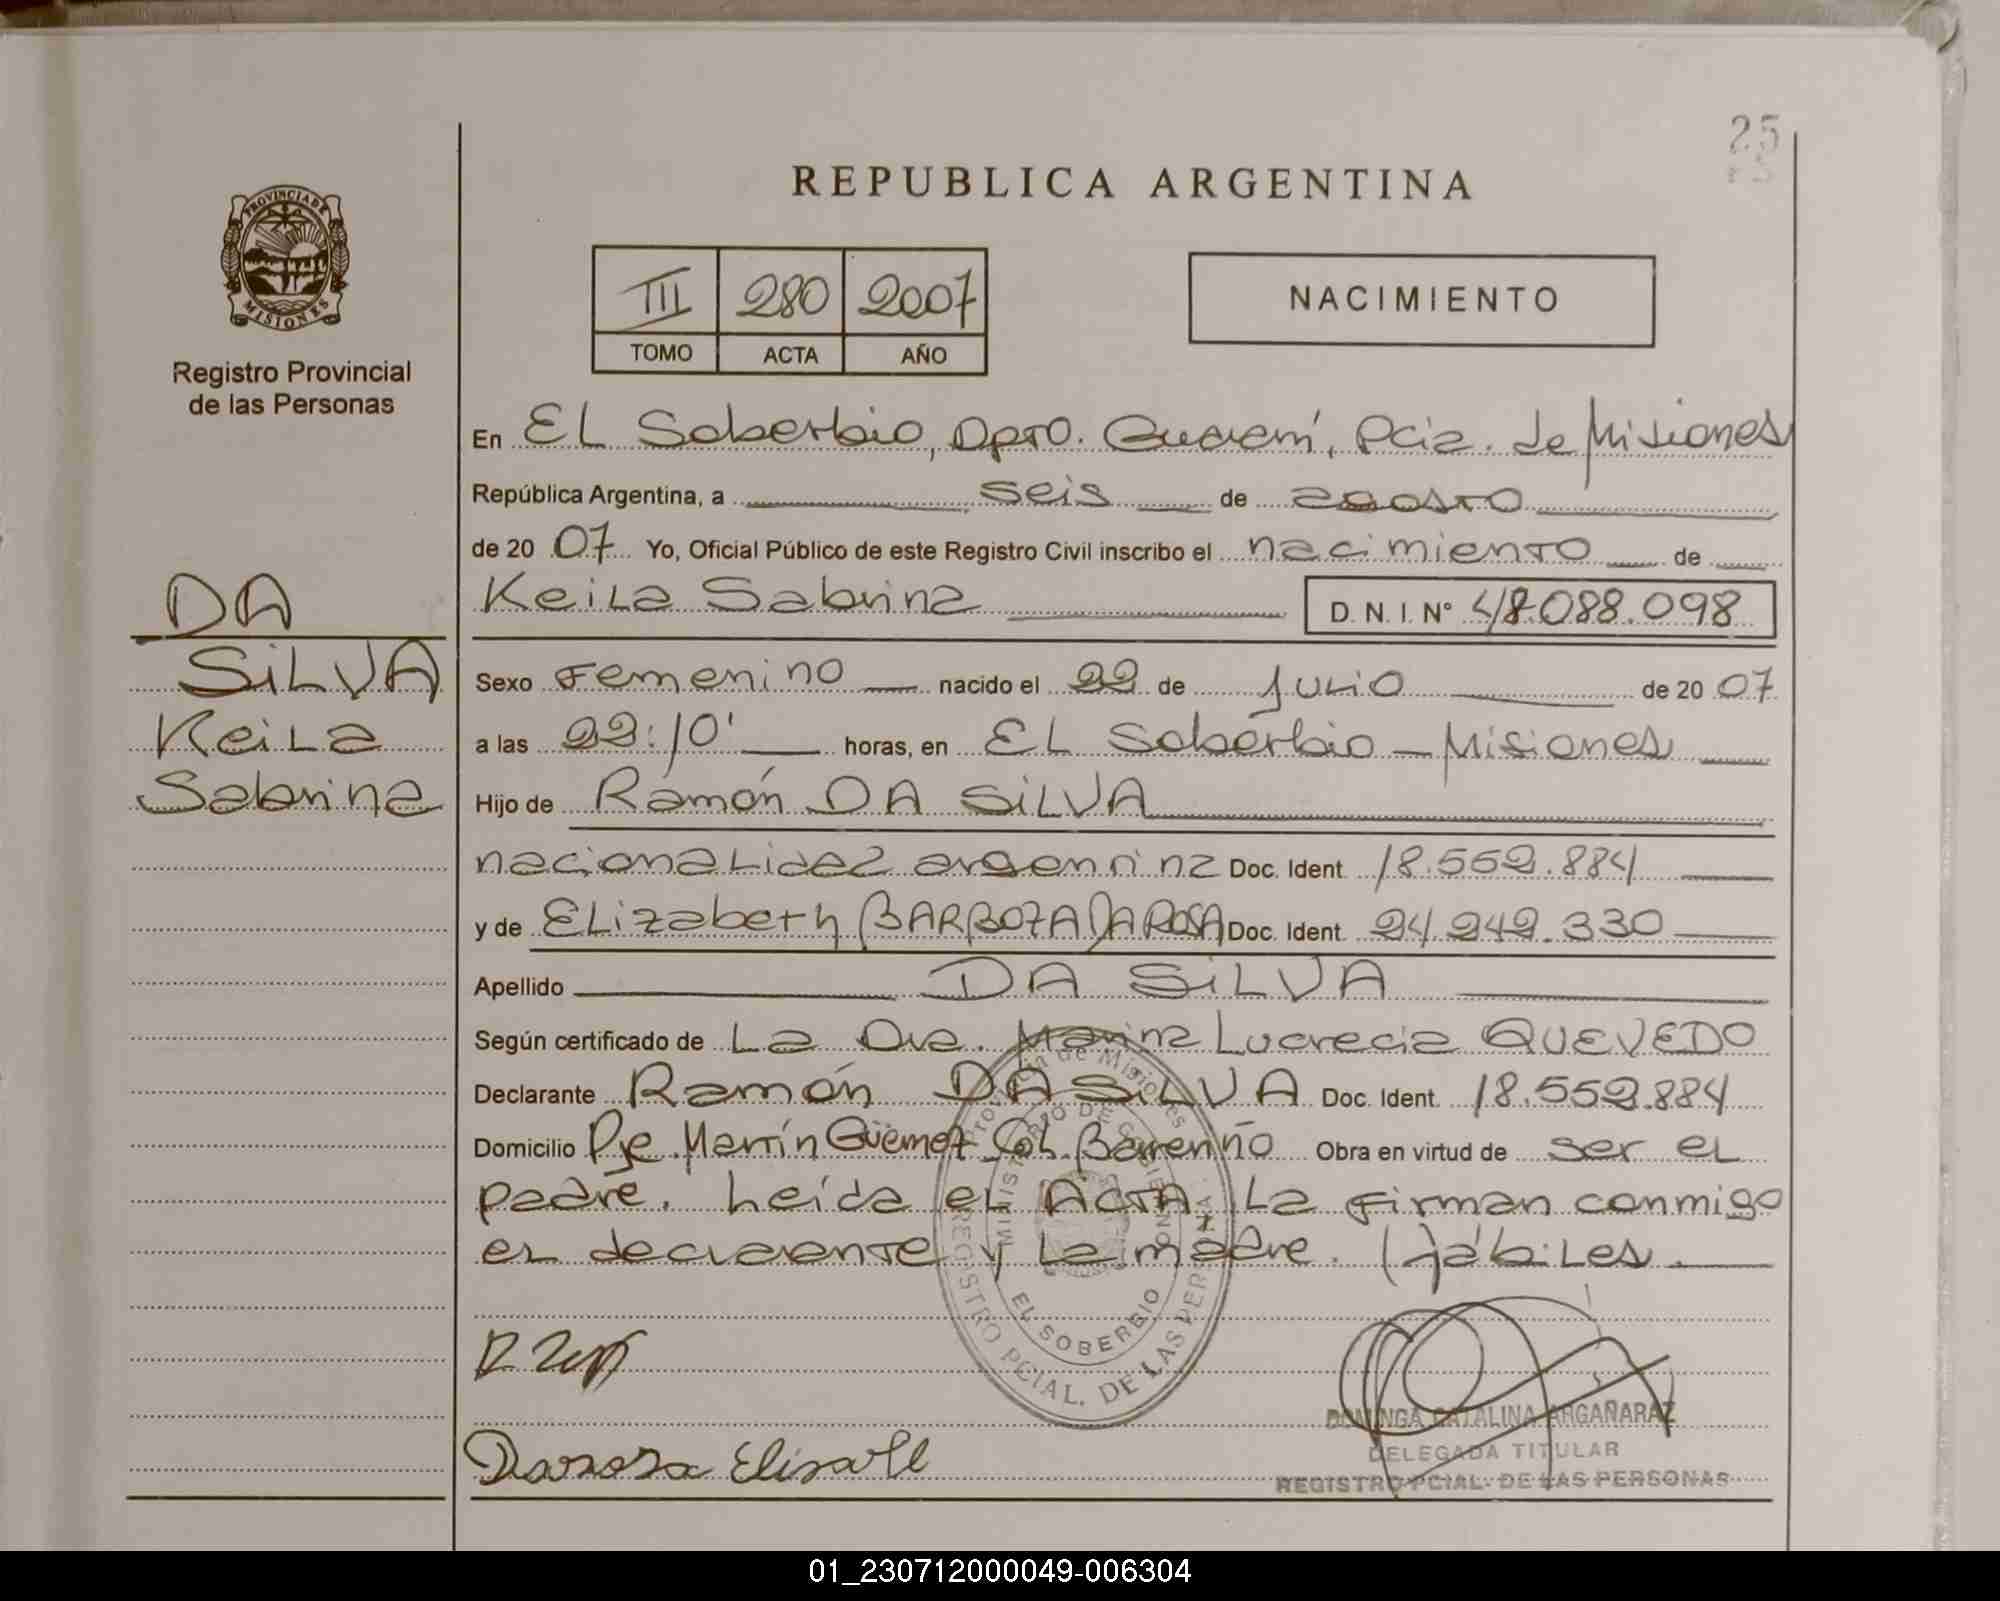 25
REPUBLICA ARGENTINA
PROVINCIA DE
MISIONES
Registro Provincial
de las Personas
III 280 2007
TOMO ACTA AÑO
NACIMIENTO
DA
SILVA
Keila
Sabrina
En EL Soberbio, Dpto. Guaraní, Pcia. de Misiones
República Argentina, a seis de agosto
de 20 07 Yo, Oficial Público de este Registro Civil inscribo el nacimiento de
Keila Sabrina D. N. I. Nº 48.088.098
Sexo Femenino nacido el 22 de Julio de 20 07
a las 22:10' horas, en EL Soberbio - Misiones
Hijo de Ramón DA SILVA
nacionalidad argentina Doc. Ident. 18.552.884
y de Elizabeth BARBOZA DA ROSA Doc. Ident. 24.242.330
Apellido DA SILVA
Según certificado de La Dra. Marina Lucrecia QUEVEDO
Declarante Ramón DA SILVA Doc. Ident. 18.552.884
Domicilio Pje. Martín Güemez Col. Barrenño Obra en virtud de ser el
padre. Leída el ACTA La firman conmigo
el declarante y la madre. Hábiles.
Provincia de Misiones
MINISTERIO DE GOBIERNO
EL SOBERBIO
REGISTRO PCIAL. DE LAS PERSONAS
Darosa Elisabe
DOMINGA CATALINA ARGAÑARAZ
DELEGADA TITULAR
REGISTRO PCIAL. DE LAS PERSONAS
01_230712000049-006304